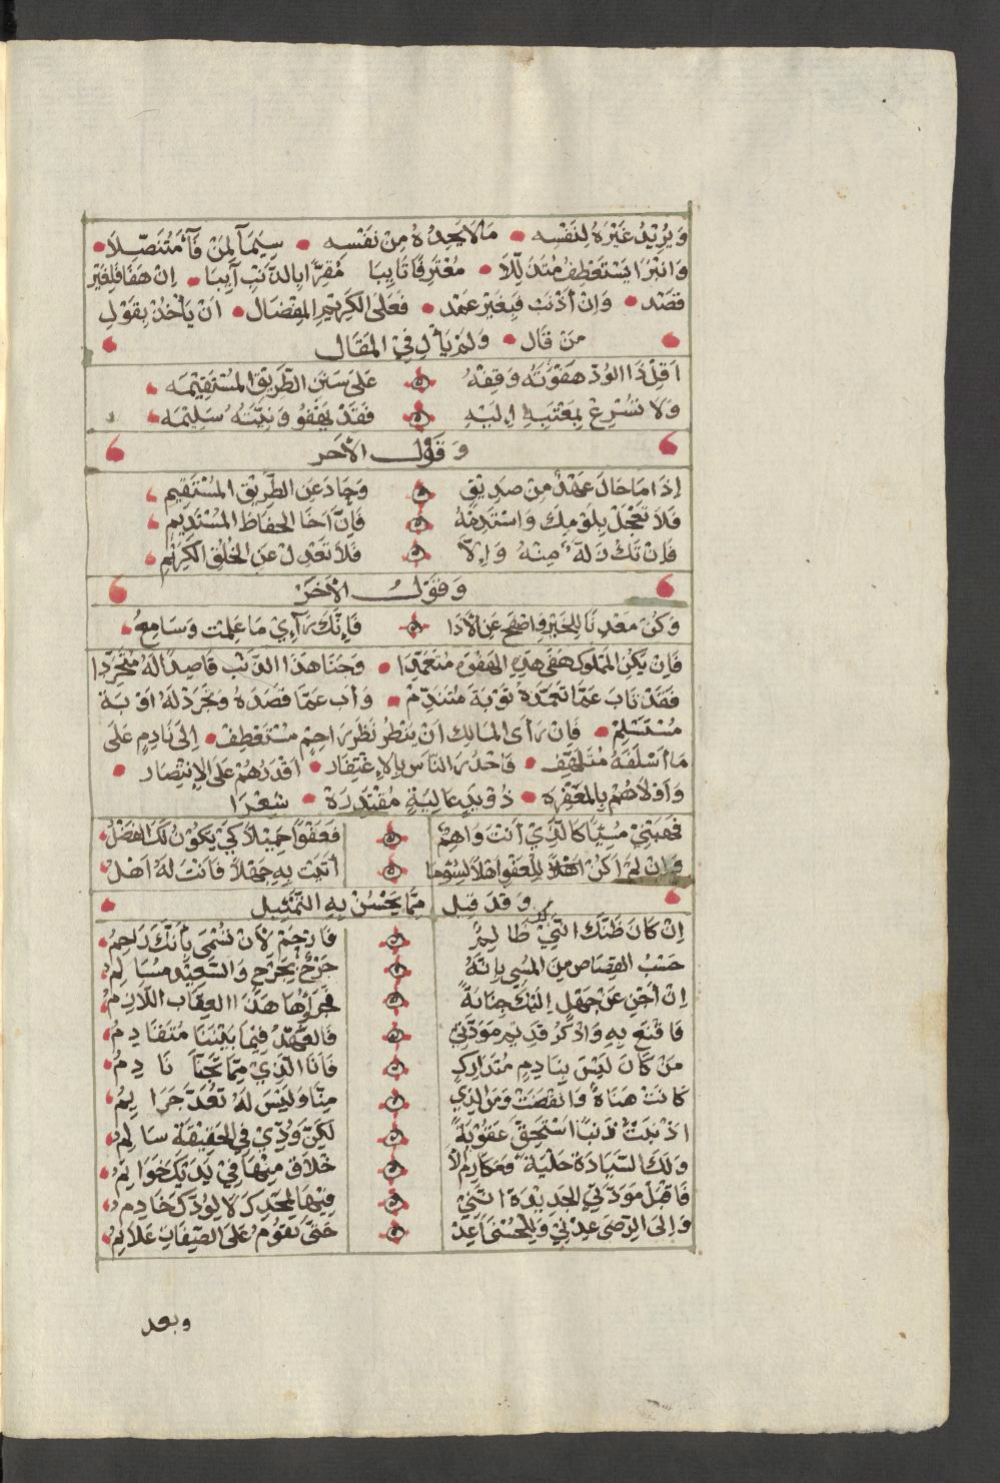 وَيُرِيْدُ غَيْرَهُ لِنَفْسِهِ • مَا لَا يَجِدُهُ مِنْ نَفْسِهِ • سِيَمَا لِمَنْ فَآءَ مُتَنَصِّلًا •
وَانْبَرَا يَسْتَعْطِفُ مُتَذَلِّلًا • مُعْتَرِفًا تَايِبًا مُقِرًّا بِالذَّنْبِ آيِبًا • اِنْ هَفَا فَلِغَيْرِ
قَصْدٍ • وَاِنْ أَذْنَبَ فَبِغَيْرِ عَمْدٍ • فَعَلَى الكَرِيْمِ المِفْضَال • اَنْ يَأْخُذَ بِقَوْلِ
مَنْ قَال • وَلَمْ يَأْلُ فِيْ المَقَال
اَقِلْ ذَا الوُدّ هَفْوَتَهُ وَقِفْهُ عَلَى سَنَنِ الطَّرِيْقِ المُسْتَقِيْمَه
وَلَا تُسْرِعْ بِمَعْتَبَةٍ اِلَيْهِ فَقَدْ يَهْفُو وَنِيَّتُهُ سَلِيْمَه
وَقَوْل الأَخر
اِذَا مَا حَالَ عَهْدٌ مِنْ صَدِيْقٍ وَحَادَ عَنِ الطَّرِيْقِ المُسْتَقِيم
فَلَا تَعْجَلْ بِلَوْمِكَ وَاسْتَدِمْهُ فَاِنَّ اَخَا الحِفَاظِ المُسْتَدِيم
فَاِنْ تَكُ زَلَّةٌ مِنْهُ وَاِلَّا فَلَا تَعْدِلْ عَنِ الخُلُقِ الكَرِيْم
وَقَوْلُ الأَخَرْ
وَكُنْ مَعْدِنًا لِلخَيْرِ وَاصْفَحْ عَنِ الأَذَا فَاِنَّكَ رَآءِيْ مَا عَمِلْتَ وَسَامِعُ
فَاِنْ يَكُنِ المَمْلُوكُ هَفَى هَذِهِ الهَفْوَه مُتَعَمِّدًا • وَجَنَا هَذَا الذَّنْبَ قَاصِدًا لَهُ مُتَجَرِّدًا
فَقَدْ تَابَ عَمَّا تَعَمَّدَهُ تَوْبَةَ مُتَنَدِّمٍ • وَأَبَ عَمَّا قَصَدَهُ وَتَجَرَّدَ لَهُ اَوْبَةَ
مُسْتَسْلِمْ • فَاِنْ رَأَى المَالِكُ اَنْ يَنْظُرَ نَظَرَ رَاحِمٍ مُسْتَعْطِفْ • اِلَى نَادِمٍ عَلَى
مَا أَسْلَفَهُ مُتَلَهِّفٍ • فَاَجْدَرُ النَّاسِ بِالاِغْتِفَار • اَقْدَرُهُمْ عَلَى الاِنْتِصَار •
وَأَوْلَاهُمْ بِالمَغْفِرَه • ذُو يَدٍ عَالِيَةٍ مُقْتَدِرَة • شِعْرًا
فَهَبْنِيْ مُسِيْئًا كَالَّذِيْ أَنْتَ وَاهِمٌ فَعَفْوًا جَمِيْلًا كَيْ يَكُوْنَ لَكَ الفَضْلُ
وَاِنْ لَمْ اَكُنْ اَهْلًا لِلعَفْوِ اَهْلًا لِسُوْءِ مَا أَتَيْتُ بِهِ جَهْلًا فَاَنْتَ لَهُ اَهْلُ
وَقَدْ قِيل مِمَّا يَحْسُنُ بِهِ التَّمْثِيل
اِنْ كَانَ ظَنُّكَ اَنَّنِيْ لَكَ ظَالِمٌ فَارْحَمْ لأَنْ تُسْمَى بِأَنَّكَ رَاحِمُ
حَسْبُ القِصَاصِ مِنَ المُسِي بِاَنَّهُ جَرْحٌ بِجَرْحٍ وَالسَّعِيْد مُسَالِمُ
اِنْ أَجْنِ عَنْ جَهْلٍ اِلَيْكَ جِنَايَةً فَجَزَاؤُهَا هَذَا العِقَاب اللَّازِمُ
فَاقْنَعْ بِهِ وَاذْكُرْ قَدِيْمَ مَوَدَّتِيْ فَالعَهْدُ فِيْمَا بَيْنَنَا مُتَقَادِمُ
مَنْ كَانَ لَيْسَ بِنَادِمٍ مُتَدَارِكٍ فَاَنَا الَّذِيْ مِمَّا تَجَنَّا نَادِمُ
كَانَتْ هَنَاةً فَانْقَضَتْ وَمَنِ الَّذِي مِنَّا وَلَيْسَ لَهُ تُعَدُّ جَرَايِمُ
اَذْنَبْتُ ذَنْبًا اَسْتَحِقُّ عُقُوْبَةً لَكِنَّ وُدِّيْ فِي الحَقِيْقَةِ سَالِمُ
وَلَكَ السِّيَادَةُ حِلْيَةٌ وَمَكَارِمُ الأَ خْلَاق مِنْهَا فِيْ يَدَيْكَ خَوَاتِمُ
فَاقْبَلْ مَوَدَّتِيَ الجَدِيْدَةَ اَنَّنِيْ فِيْهَا لِمَجْدِكَ لَا لِوُدِّكَ خَادِمُ
وَاِلَى الرِّضَى عِدْنِيْ وَلِلحُسْنَى اَعِدْ حَتَّى تَقُوْمَ عَلَى الصِّفَاتِ عَلَائِمُ
وبعد